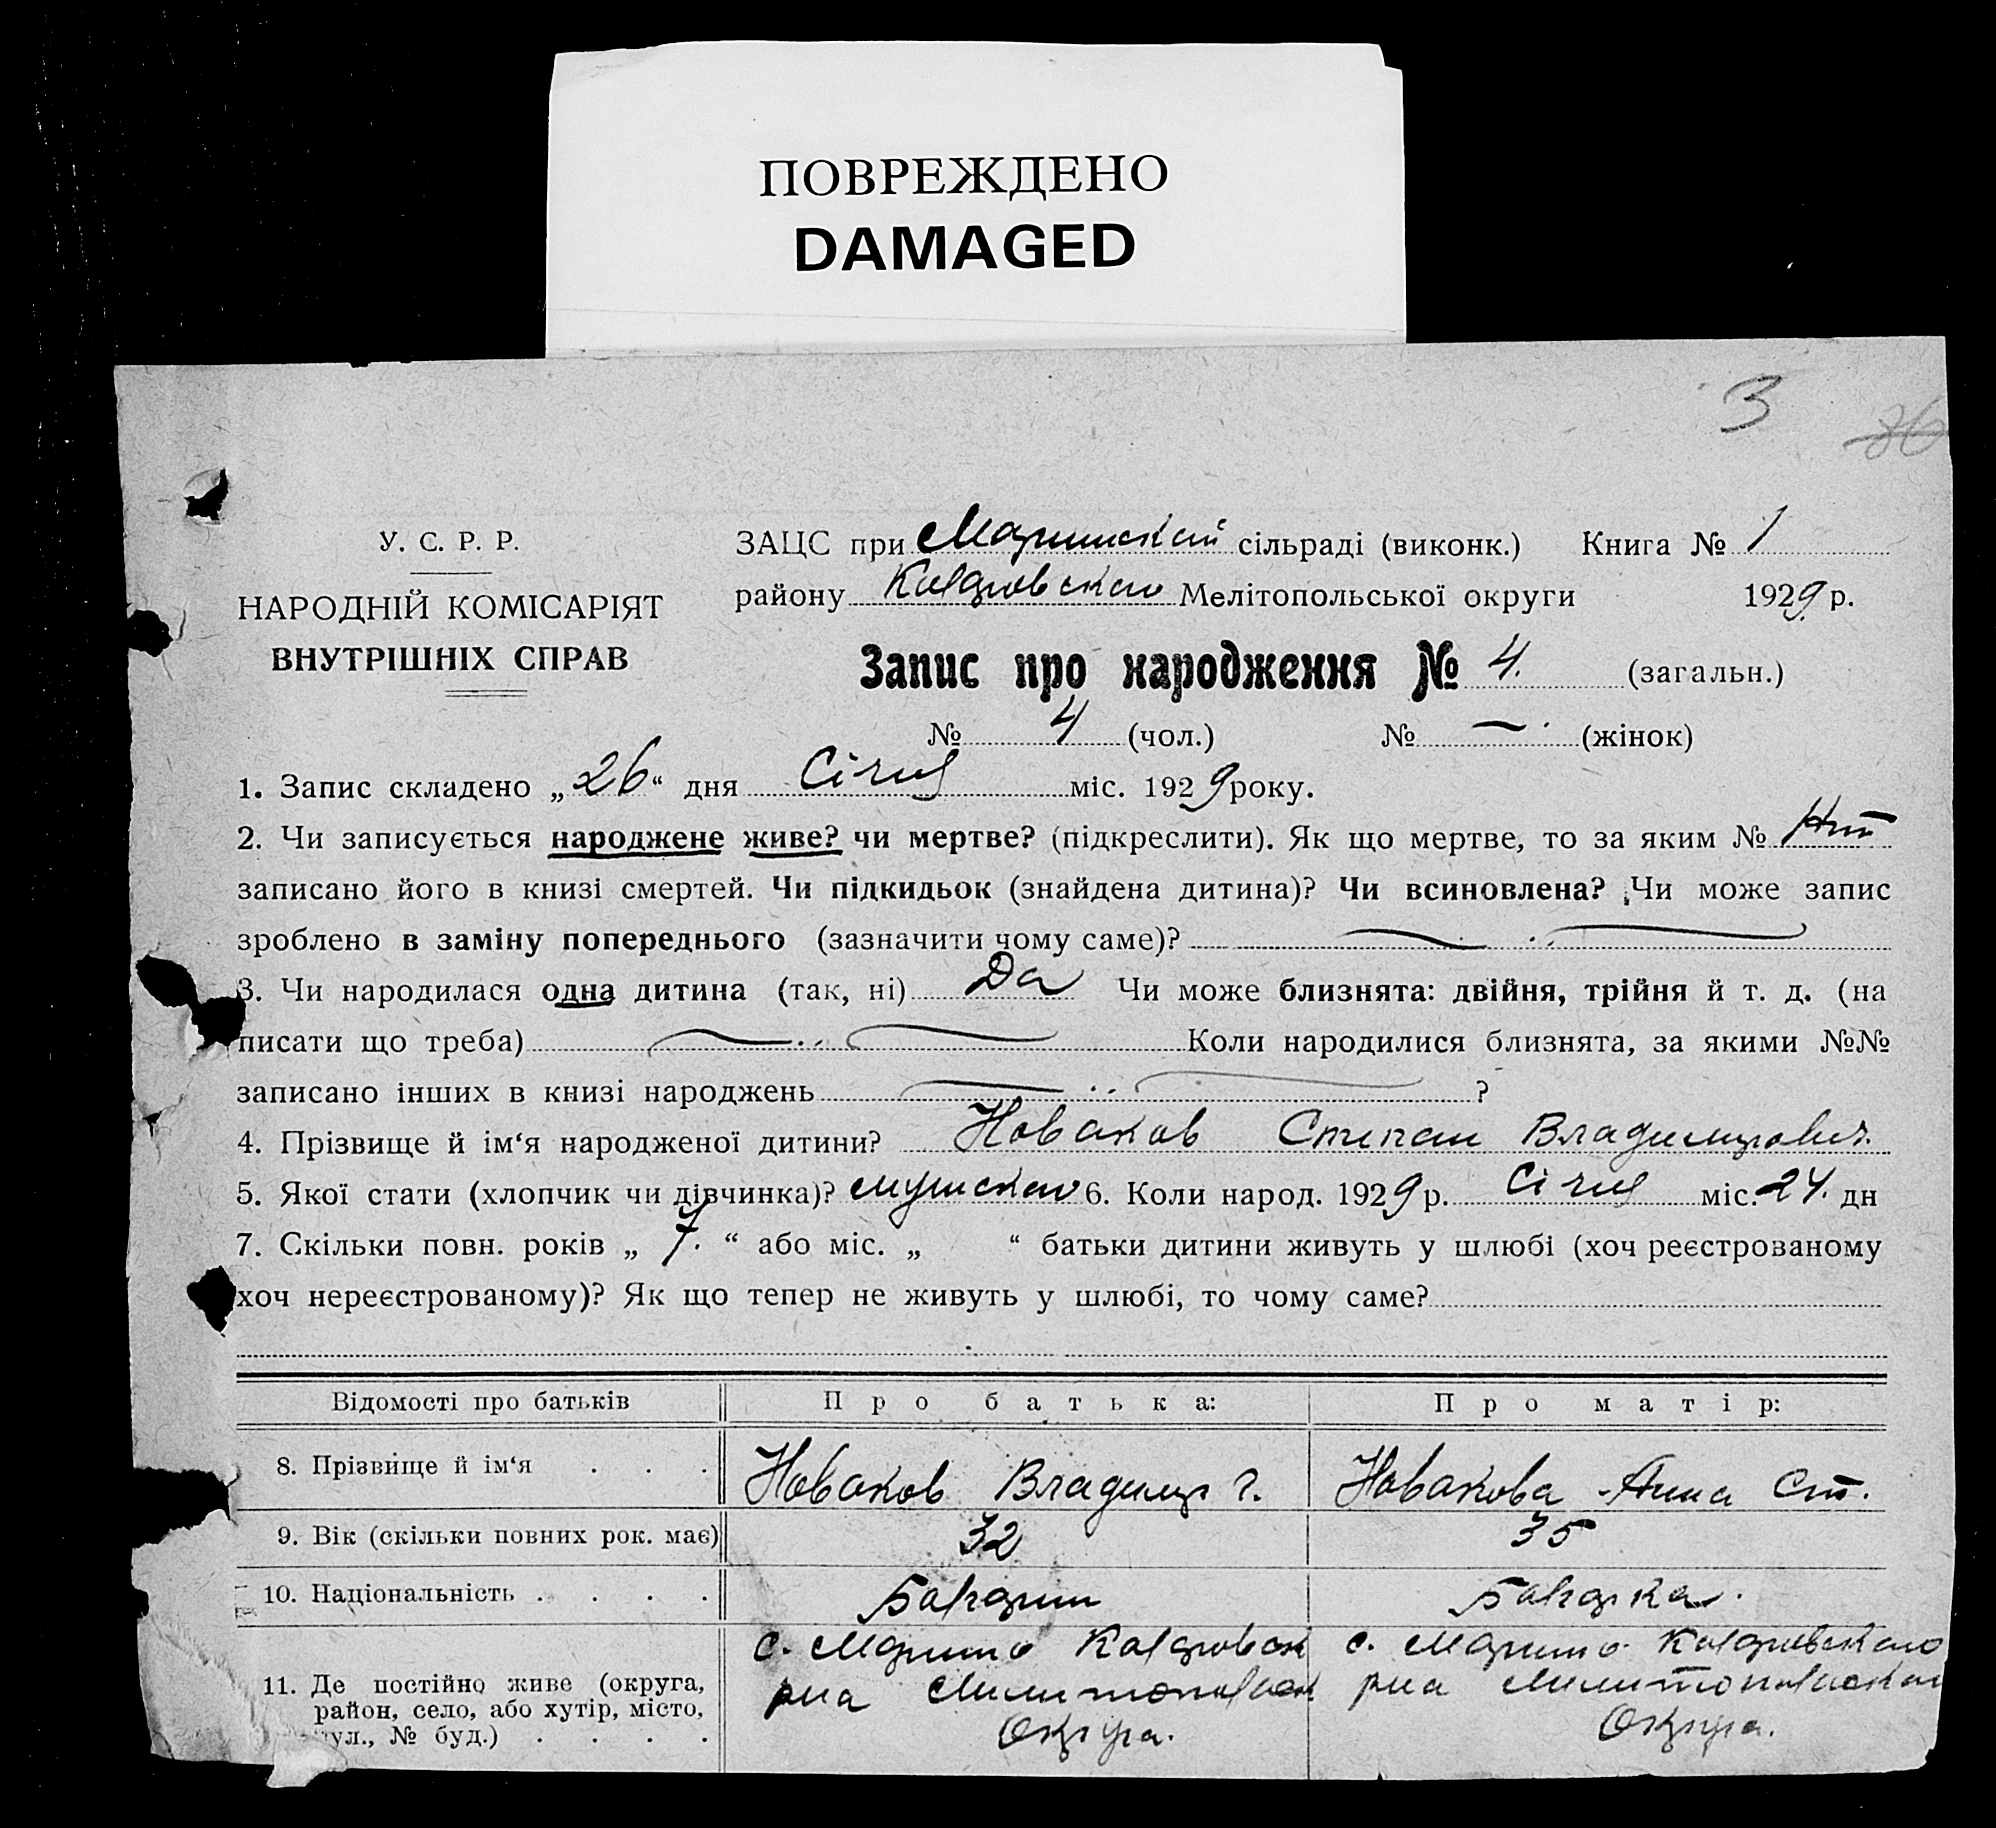 ПОВРЕЖДЕНО
DAMAGED
3
36
У. С. Р. Р.
НАРОДНІЙ КОМІСАРІЯТ
ВНУТРІШНІХ СПРАВ
ЗАЦС при сільраді (виконк.) Книга № 1
району Мелітопольської округи 1929 р.
Запис про народження № 4. (загальн.)
№ 4 (чол.) № — (жінок)
1. Запис складено „26“ дня Січня міс. 1929 року.
2. Чи записується народжене живе? чи мертве? (підкреслити). Як що мертве, то за яким № Нет
записано його в книзі смертей. Чи підкидьок (знайдена дитина)? Чи всиновлена? Чи може запис
зроблено в заміну попереднього (зазначити чому саме)?
3. Чи народилася одна дитина (так, ні) Да Чи може близнята: двійня, трійня й т. д. (на
писати що треба) Коли народилися близнята, за якими №№
записано інших в книзі народжень ?
4. Прізвище й ім‘я народженої дитини? Новаков Степан Владимирович.
5. Якої стати (хлопчик чи дівчинка)? мужской 6. Коли народ. 1929 р. Січня міс. 24. дн
7. Скільки повн. років „ 7. “ або міс. „ “ батьки дитини живуть у шлюбі (хоч реєстрованому
хоч нереєстрованому)? Як що тепер не живуть у шлюбі, то чому саме?
Відомості про батьків Про батька: Про матір:
8. Прізвище й ім‘я . . . Новаков Владимир Г. Новакова Анна Ст.
9. Вік (скільки повних рок. має) 32 35
10. Національність . . . . Болгарин Болгарка.
11. Де постійно живе (округа,
район, село, або хутір, місто,
вул., № буд.) . . . .
с.
р-на Мелитопольск
Округа.
с.
р-на Мелитопольской
Округа.